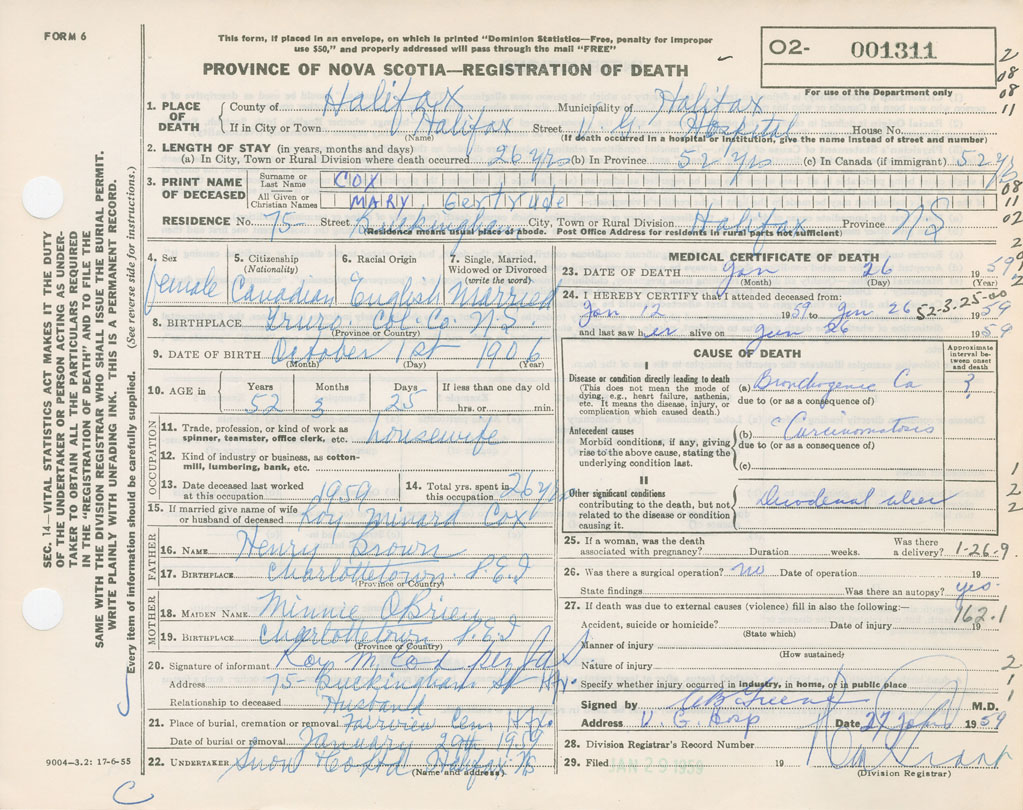 FORM 6
This form, if placed in an envelope, on which is printed "Dominion Statistics—Free, penalty for improper
use $50," and properly addressed will pass through the mail "FREE"
O2- 001311
For use of the Department only
PROVINCE OF NOVA SCOTIA—REGISTRATION OF DEATH
2
08
08
11
1. PLACE OF DEATH County of Halifax Municipality of Halifax
If in City or Town Halifax Street V G Hospital House No.
(Name) (If death occurred in a hospital or institution, give the name instead of street and number)
2. LENGTH OF STAY (in years, months and days)
(a) In City, Town or Rural Division where death occurred 26 yrs (b) In Province 52 yrs (c) In Canada (if immigrant) 52 yrs
3. PRINT NAME OF DECEASED Surname or Last Name COX
All Given or Christian Names MARY, Gertrude
08
11
02
RESIDENCE No. 75 Street Buckingham City, Town or Rural Division Halifax Province N S
(Residence means usual place of abode. Post Office Address for residents in rural parts not sufficient)
4. Sex 5. Citizenship (Nationality) 6. Racial Origin 7. Single, Married, Widowed or Divorced (write the word)
female Canadian English Married
8. BIRTHPLACE Truro Col. Co. N S.
(Province or Country)
9. DATE OF BIRTH October 1st 1906
(Month) (Day) (Year)
10. AGE in Years Months Days If less than one day old
52 3 25 hrs. or min.
OCCUPATION
11. Trade, profession, or kind of work as spinner, teamster, office clerk, etc. housewife
12. Kind of industry or business, as cotton-mill, lumbering, bank, etc.
13. Date deceased last worked at this occupation 1959 14. Total yrs. spent in this occupation 26 yrs
15. If married give name of wife or husband of deceased Roy Minard Cox
FATHER
16. NAME Henry Brown
17. BIRTHPLACE Charlottetown P.E.I
(Province or Country)
MOTHER
18. MAIDEN NAME Minnie OBrien
19. BIRTHPLACE Charlottetown P.E.I
(Province or Country)
20. Signature of informant Roy M. Cox per
Address 75 Buckingham St Hfx.
Relationship to deceased Husband
21. Place of burial, cremation or removal Fairview Cem Hfx.
Date of burial or removal January 29th 1959
22. UNDERTAKER Snow & Co Ltd Halifax NS
(Name and address)
MEDICAL CERTIFICATE OF DEATH
23. DATE OF DEATH Jan 26 1959
(Month) (Day) (Year)
24. I HEREBY CERTIFY that I attended deceased from:
Jan 12 1959 to Jan 26 1959
52-3-25-00
and last saw her alive on Jan 26 1959
CAUSE OF DEATH
Approximate interval between onset and death
I
Disease or condition directly leading to death
(This does not mean the mode of dying, e.g., heart failure, asthenia, etc. It means the disease, injury, or complication which caused death.)
(a) Bronchogenic Ca ?
due to (or as a consequence of)
Antecedent causes
Morbid conditions, if any, giving rise to the above cause, stating the underlying condition last.
(b) Carcinomatosis
due to (or as a consequence of)
(c)
II
Other significant conditions
contributing to the death, but not related to the disease or condition causing it.
Duodenal ulcer
1
2
2
25. If a woman, was the death associated with pregnancy? Duration weeks. Was there a delivery?
1-26-9
26. Was there a surgical operation? no Date of operation 19
State findings Was there an autopsy? yes.
27. If death was due to external causes (violence) fill in also the following:—
162.1
Accident, suicide or homicide? Date of injury 19
(State which)
Manner of injury
(How sustained)
Nature of injury
2
1
1
Specify whether injury occurred in industry, in home, or in public place
Signed by M.D.
Address V. G. Hosp Date 27 Jan 1959
28. Division Registrar's Record Number
29. Filed JAN 29 1959 19
(Division Registrar)
SEC. 14—VITAL STATISTICS ACT MAKES IT THE DUTY
OF THE UNDERTAKER OR PERSON ACTING AS UNDER-
TAKER TO OBTAIN ALL THE PARTICULARS REQUIRED
IN THE "REGISTRATION OF DEATH" AND TO FILE THE
SAME WITH THE DIVISION REGISTRAR WHO SHALL ISSUE THE BURIAL PERMIT.
WRITE PLAINLY WITH UNFADING INK. THIS IS A PERMANENT RECORD.
Every item of information should be carefully supplied. (See reverse side for instructions.)
9004—3.2: 17-6-55
C